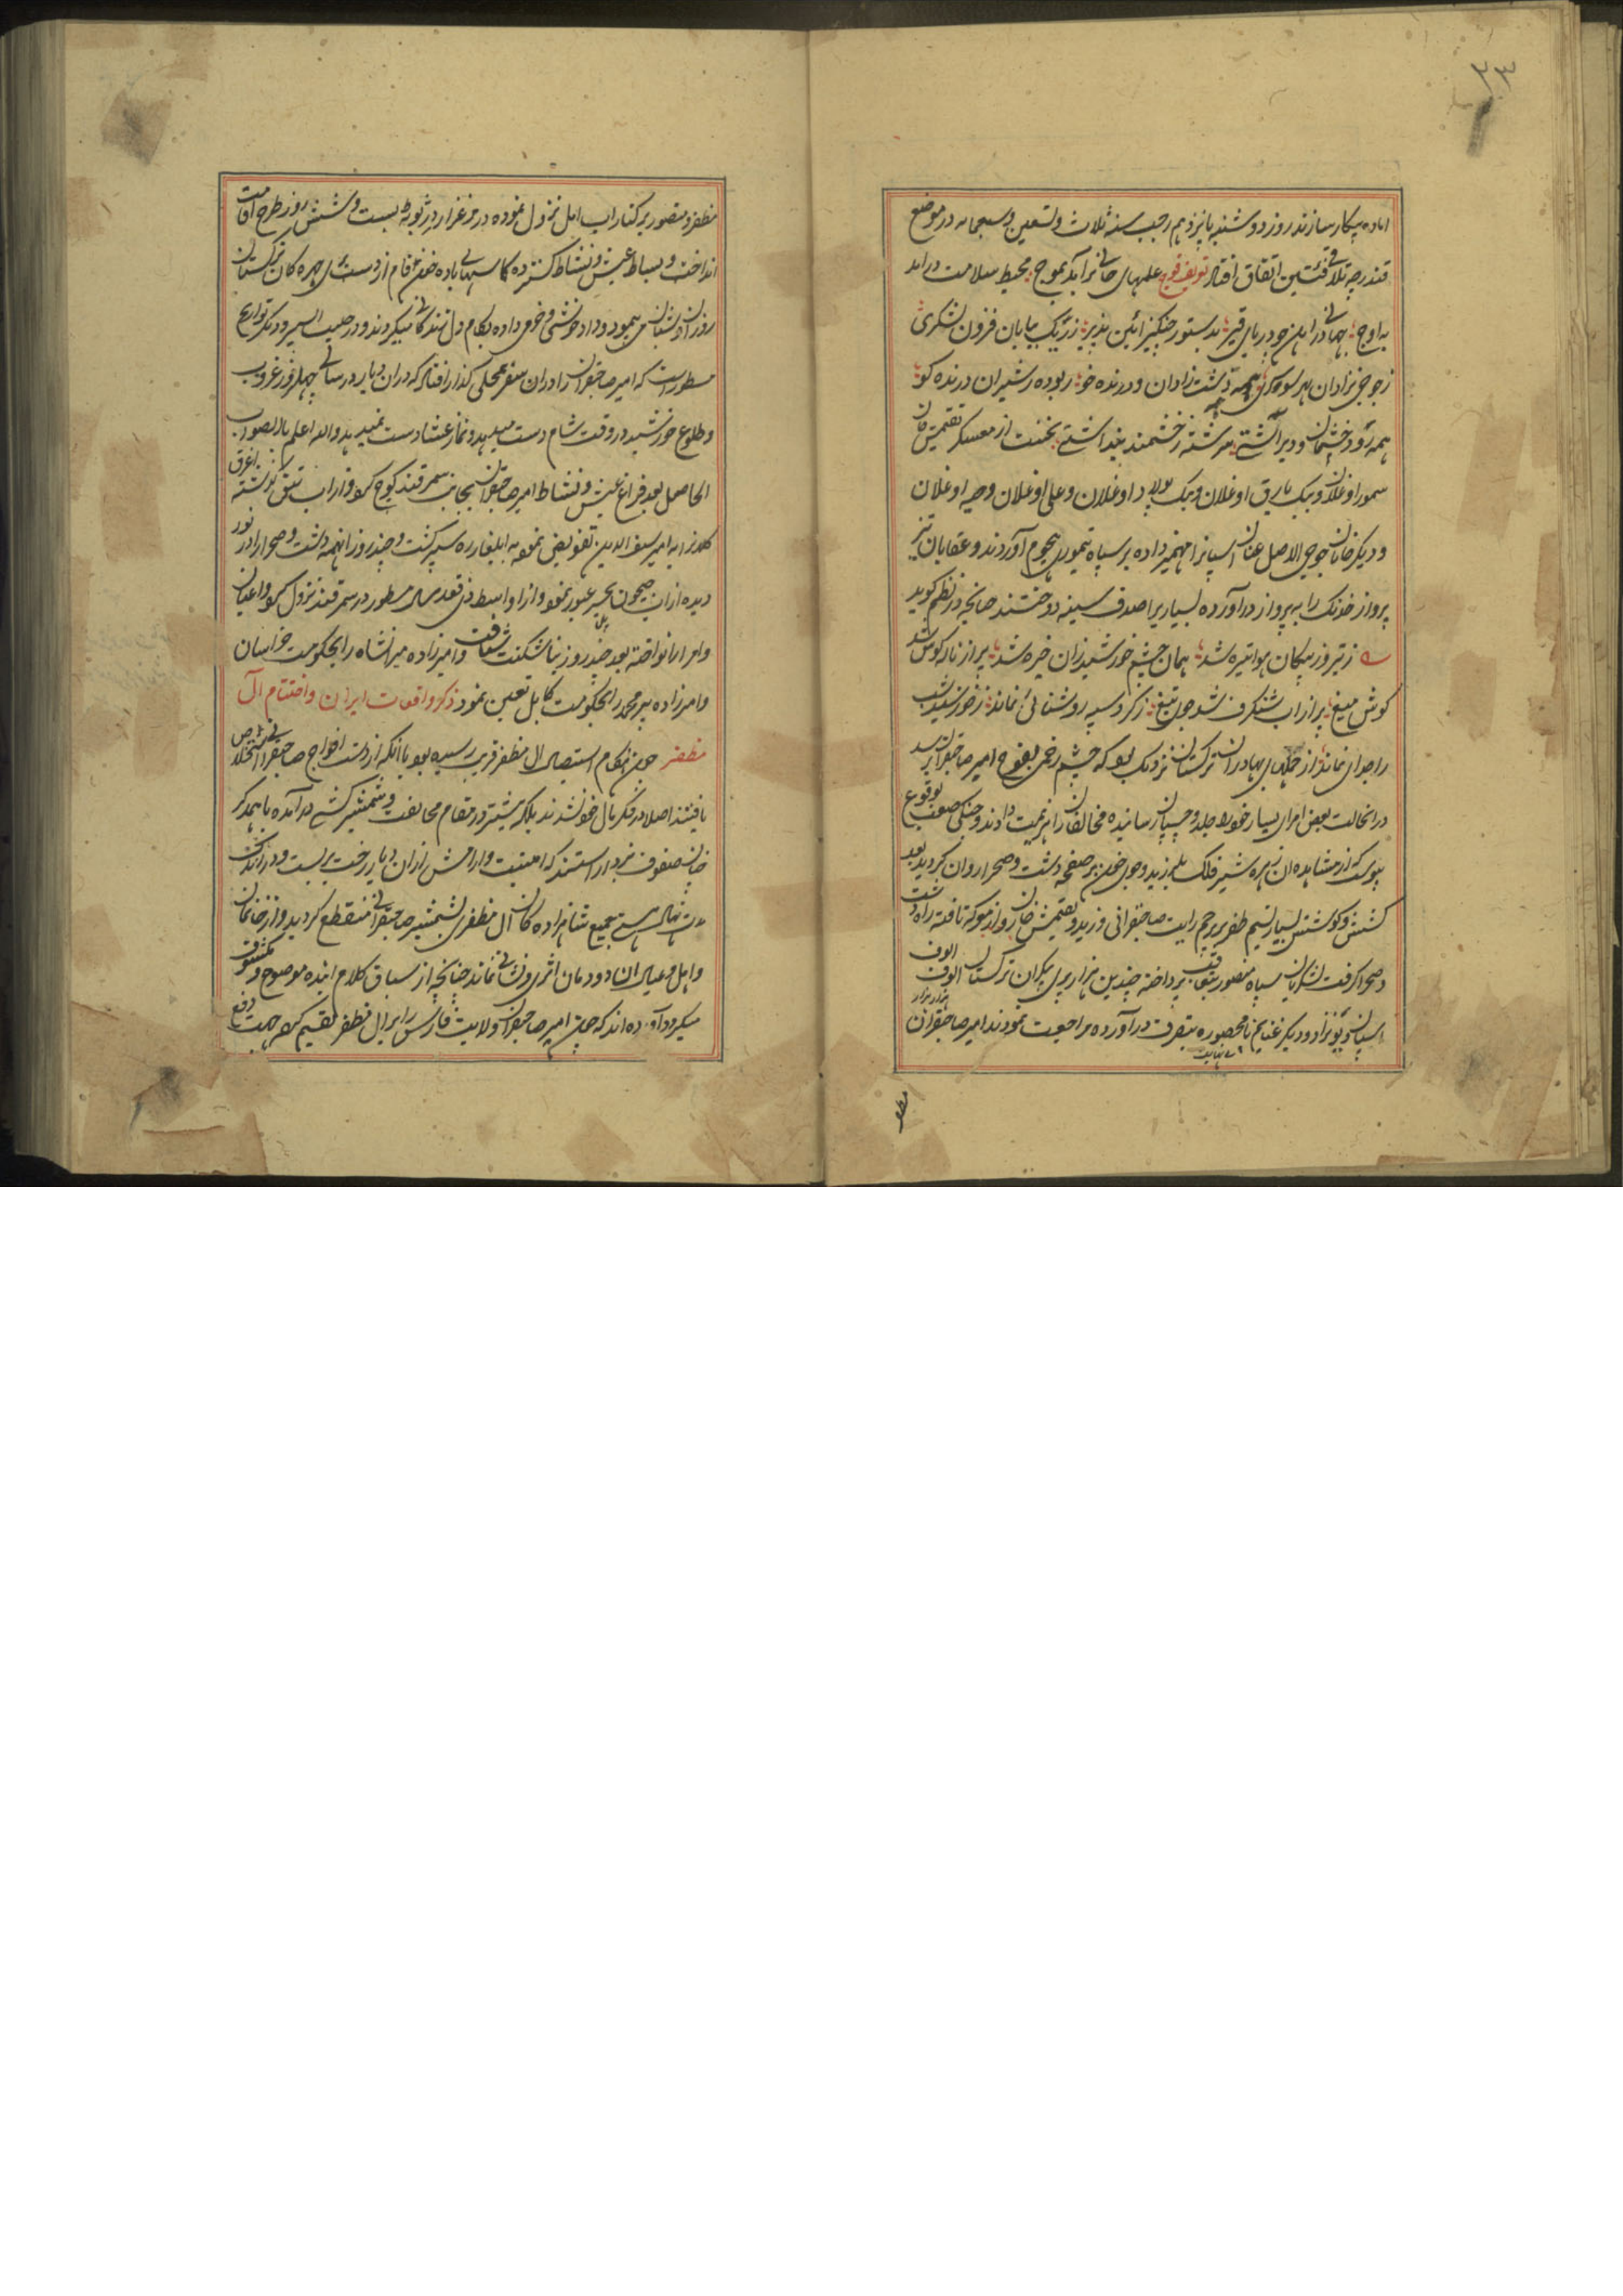 ۳۳
اماده پیکار سازند روز دوشنبه پانزدهم رجب سنه ثلاث و تسعین و سبعمایه در موضع
قندرچه تلاقی فئتین اتفاق افتاد علمهای خانی برآمد بموج محیط سلامت درامد
به اوج جهانی در اهن چو دریای قیر بدستور چنکیز ائین پذیر ز ریک بیابان فزون لشکری
ز جوجی نژادان بهر سو همه دشت زادان و درنده خو ربوده ز شیران درنده کو
همه و دیر آشتی سرشته ز خشمند پنداشتی نخست از معسکر تقتمش خان
اوغلان و بیک یارق اوغلان و بیک پولاد اوغلان و علی اوغلان و اوغلان
و دیکر خانان جوجی الاصل عنان اسپانرا مهمیز داده بر سپاه تیموری هجوم آوردند و عقابان تیز
پرواز خدنک را به پرواز درآورده بسیاریرا صدف سینه دوختند چنانچه در نظم کوید
ز تیر و ز پیکان هوا تیره شد همان چشم خورشید زان خیره شد پر از ناله کوس شد
کوش میغ پر از آب شنکرف شد جان تیغ ز کرد سپه روشنائی نماند ز خورشید شب
را جدائی نماند از حملهای بهادران ترکستان نزدیک بود که چشم زخمی بفوج امیر صاحبقران رسد
درانحالت بعض امرای بسیار خود جلد و چسپان رسانیده مخالفان را هزیمت دادند و جنکی صعب بوقوع
پیوست که از مشاهده ان زهره شیر فلک بلرزید و جوی خون بر صفحه دشت و صحرا روان کردید بعد
کشش و کوشش بسیار نسیم ظفر بر پرچم رایت صاحبقرانی وزید و تقتمش خان رو از معرکه تافته راه دشت
و صحرا کرفت سپاه منصور بتعاقب پرداخته چندین هزار پری پیکران ترکستان الوف الوف
اسپان و دیکر غنایم نامحصوره بتصرف درآورده مراجعت نمودند امیر صاحبقران
هزار هزار
بی نهایت
مظفر
مظفر و منصور بر کنار اب امل نزول نموده در مرغزار بیست و شش روز طرح اقامت
انداخت و بساط عیش و نشاط کسترده کاسهای باده از دست پری چهره کان ترکستان
می پیمود و داد خوشی و خرمی داده بکام دل میکردند و در حبیب السیر و دیکر تواریخ
مسطور است که امیر صاحبقران را دران سفر بمحلی کذار افتاد که دران دیار در سالی چهل روز غروب
و طلوع خورشید در وقت شام دست میدهد و نماز عشا دست نمیدهد والله اعلم بالصواب
الحاصل بعد فراغ عیش و نشاط امیر صاحبقران بجانب سمرقند کوچ کرد و از اب تیق کذشته اغرق
کلانرا به امیر سیف الدین تفویض نموده به ایلغار ره سپر کشت و چند روز انهمه دشت و صحرا را در نور
دیده از اب سیحون عبور نمود و از اواسط ذی قعده سال مسطور در سمرقند نزول کرد و اعیان
و امرا را نواخته بعد چند روز بتاشکنت شتافت و امیرزاده میرانشاه را بحکومت خراسان
و امیرزاده پیرمحمد را بحکومت کابل تعین نمود ذکر واقعات ایران و اختتام آل
مظفر چون هنکام استیصال ال مظفر قریب رسیده بود با انکه از دست افواج صاحبقرانی استخلاص
یافتند اصلا در فکر مال خود نشدند بلکه بیشتر در مقام مخالفت و شمشیر کشی درآمده با همدکر
چنان صفوف نبرد اراستند که امنیت و ارامش ازان دیار رخت بربست و در اندک
مدت نهال هستی جمیع شاهزاده کان آل مظفر بشمشیر صاحبقرانی منقطع کردید و از خانمان
و اهل و عیال ان دودمان اثری و نشانی نماند چنانچه از سیاق کلام اینده موضوح و مکشوف
میکردد آورده اند که چون امیر صاحبقران ولایت فارس را بر ال مظفر تقسیم کرد جهت دفع